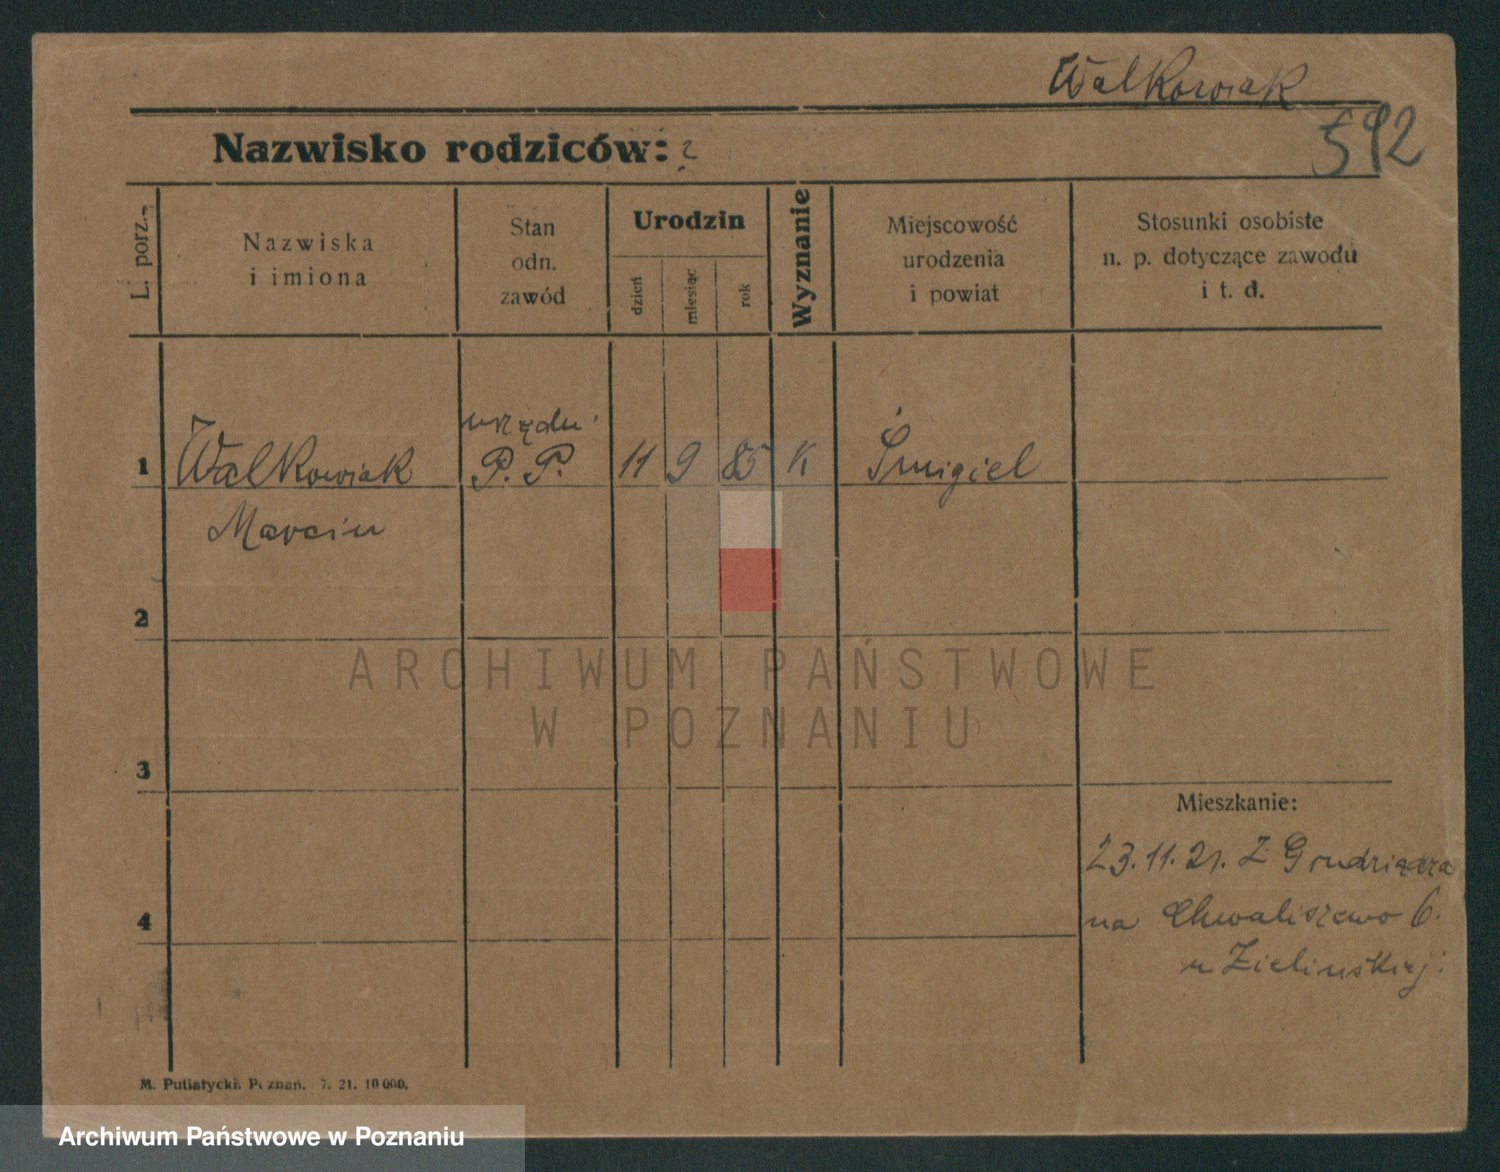 Walkowiak
592
Nazwisko rodziców: ?
L. porz.
Nazwiska
i imiona
Stan
odn.
zawód
Urodzin
dzień
miesiąc
rok
Wyznanie
Miejscowość
urodzenia
i powiat
Stosunki osobiste
n. p. dotyczące zawodu
i t. d.
urzędn.
1 Walkowiak P. P. 11 9 85 K Śmigiel
Marcin
2
ARCHIWUM PAŃSTWOWE
W POZNANIU
3
Mieszkanie:
23.11.21. Z Grudziądza
4
na Chwaliszewo 6.
u Zielińskiej
M. Putiatycki. Poznań. 7. 21. 10 000.
Archiwum Państwowe w Poznaniu